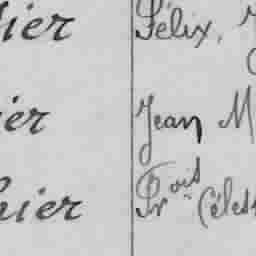 ier Félix,
ier Jean M
hier Fr^ois Céles